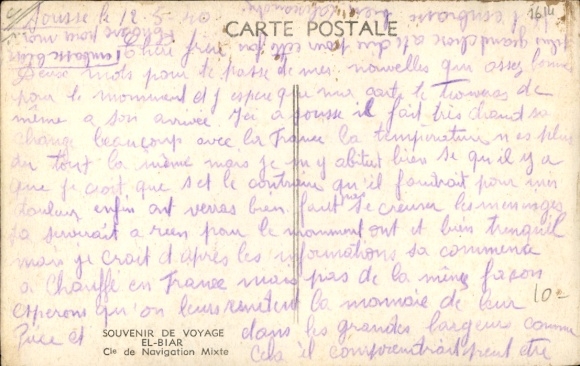 Sousse le 12.5.40
CARTE POSTALE
1614
Cher frère
Deux mots pour te passe de mes nouvelles qui assez bonnes
pour le momment et j espere que ma carte te trouveras de
même a son arrivée Ici a sousse il fait très chaud sa
change beaucoup avec la France la temperature n es plus
du tout la même mais je m y abtue bien se qu'il y a
que je croit que s et le contraire qu'il faudrait pour mes
enfin ont verras bien faut pas se creuser les meninges
sa servirait a rien pour le momment ont et bien tranquil
mais je croit d'après les informations sa commence
a chauffé en France mais pas de la même façon
esperons qu'on leurs la monnaie de leur
Pièce et dans les grandes largeurs comme
Cela il comprendrait peut être
10-
SOUVENIR DE VOYAGE
EL-BIAR
Cie de Navigation Mixte
plus grand chose a te dire pour cette fois
j embrasse
embrasse bien
pour moi